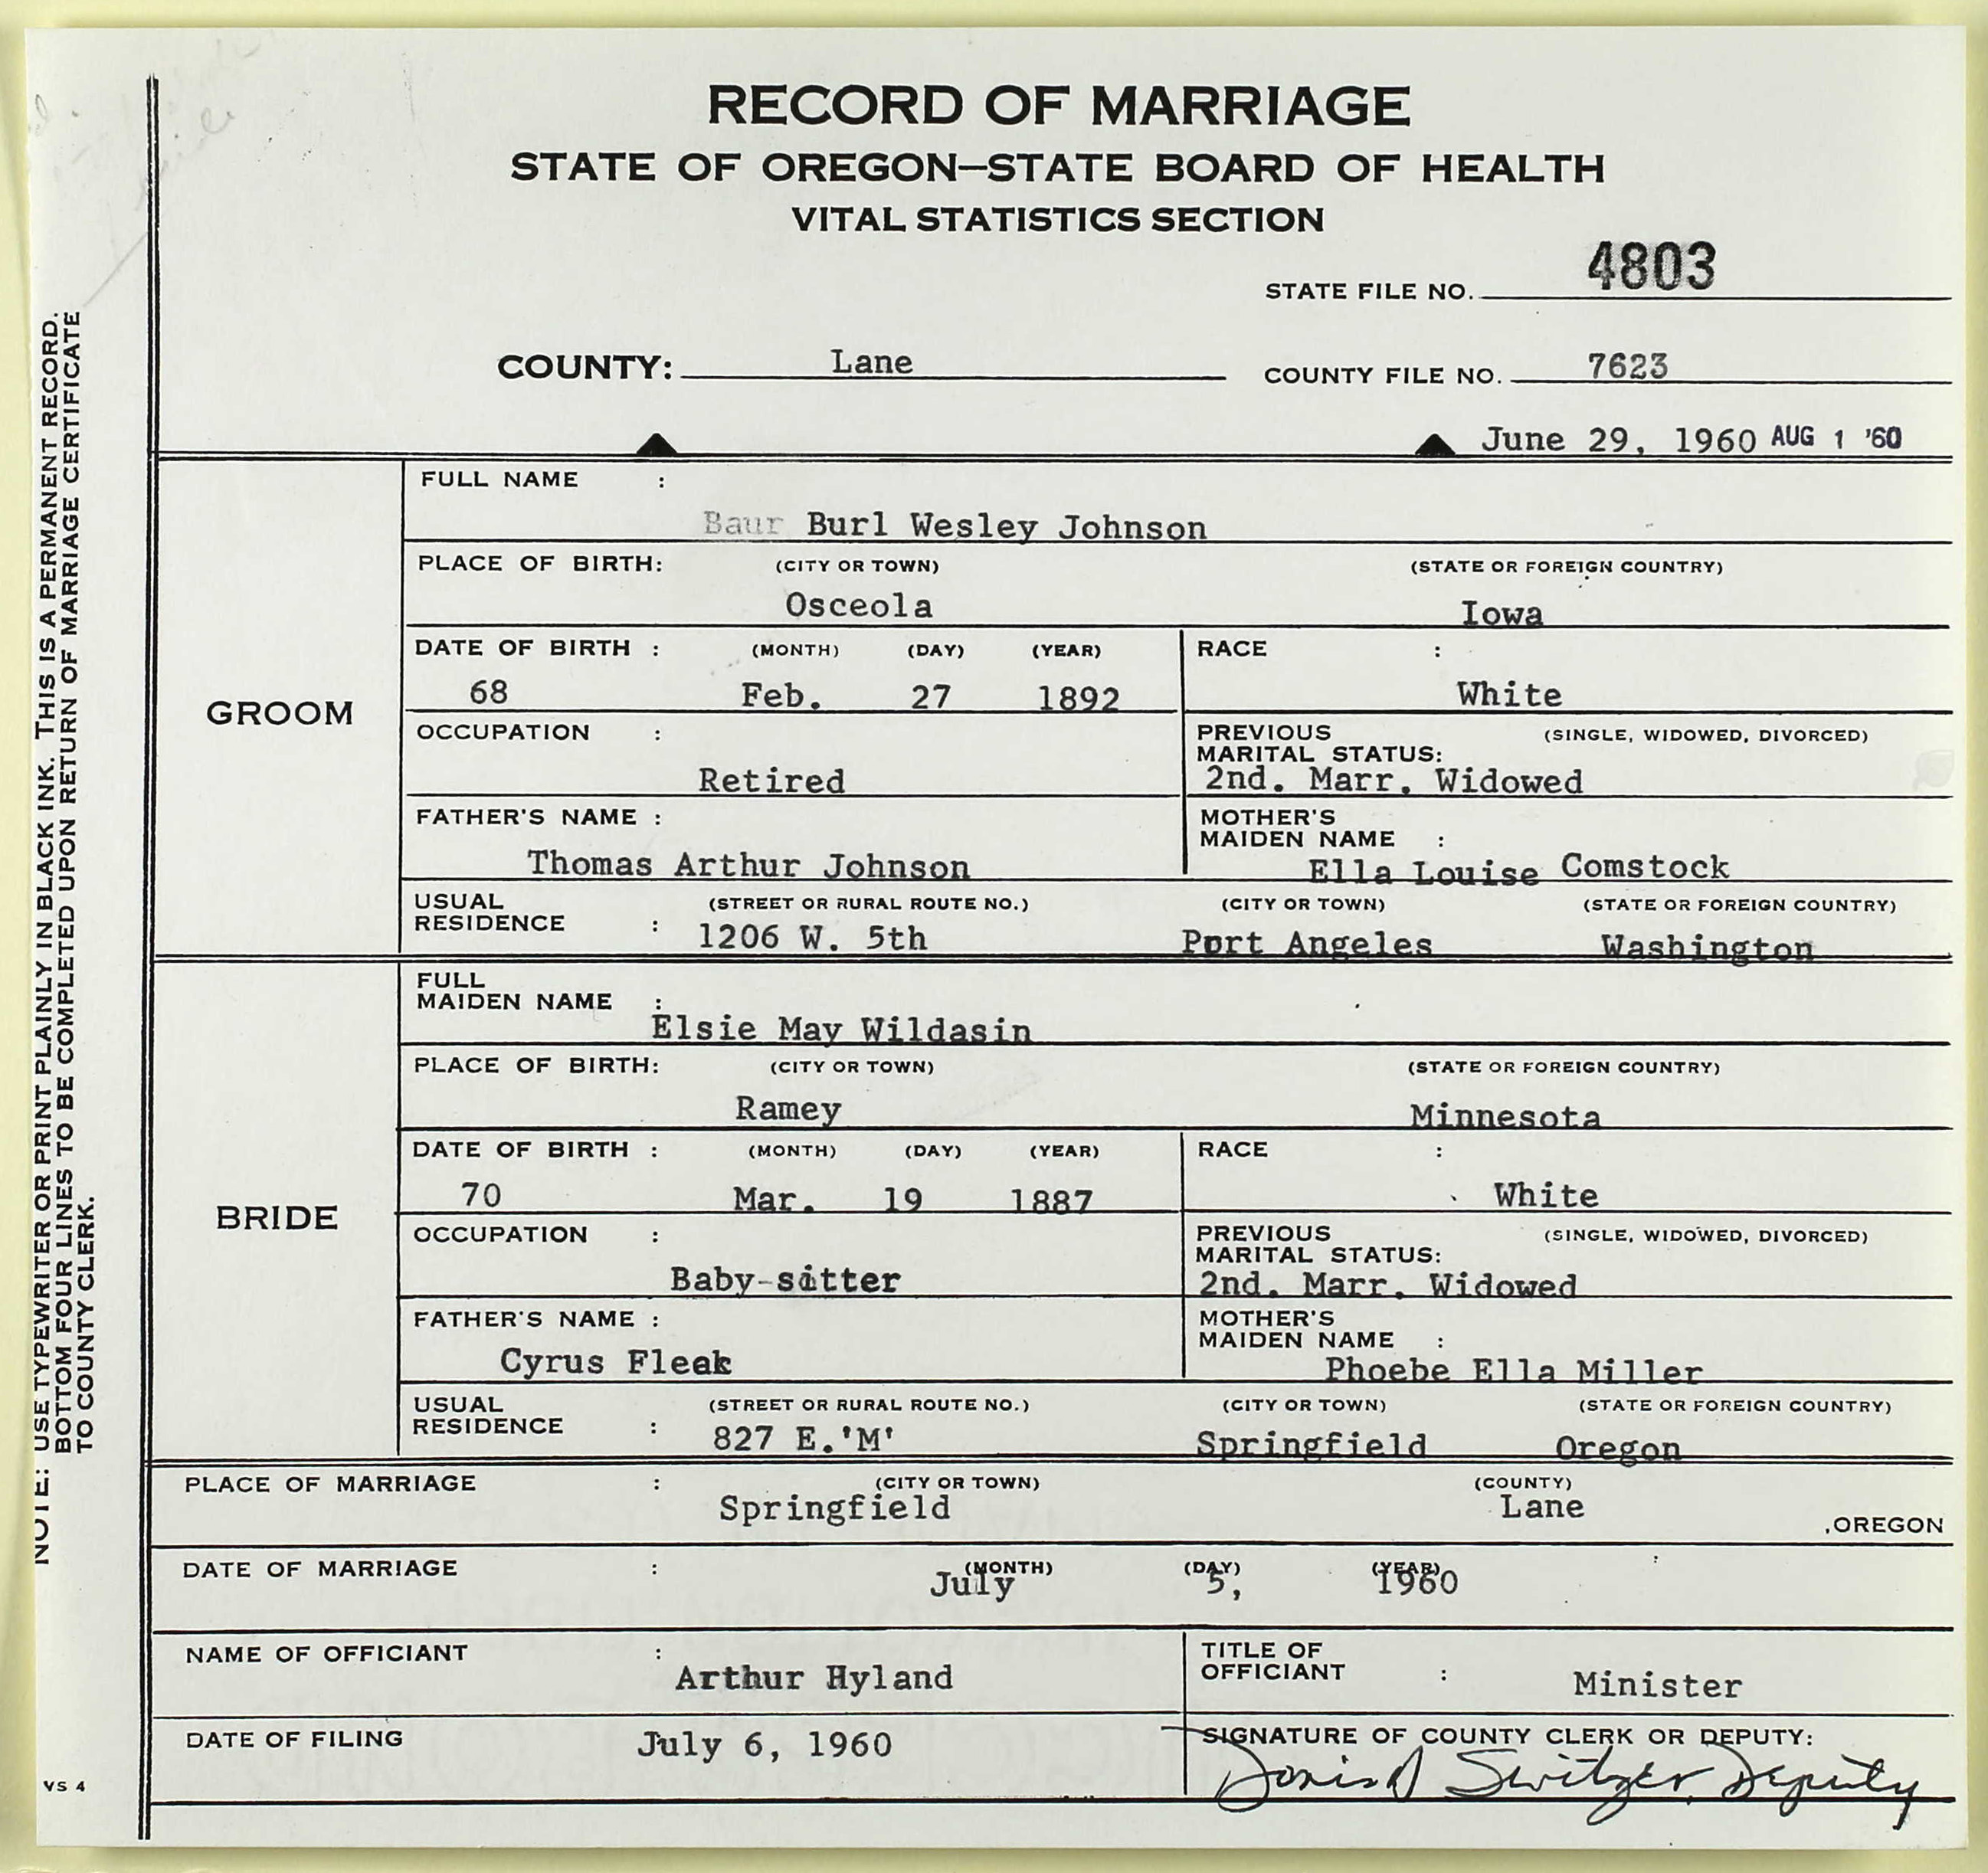 RECORD OF MARRIAGE
STATE OF OREGON—STATE BOARD OF HEALTH
VITAL STATISTICS SECTION
STATE FILE NO. 4803
COUNTY: Lane COUNTY FILE NO. 7623
June 29, 1960 AUG 1 '60
GROOM
FULL NAME :
Baur Burl Wesley Johnson
PLACE OF BIRTH: (CITY OR TOWN) (STATE OR FOREIGN COUNTRY)
Osceola Iowa
DATE OF BIRTH : (MONTH) (DAY) (YEAR) RACE :
68 Feb. 27 1892 White
OCCUPATION : PREVIOUS (SINGLE, WIDOWED, DIVORCED)
MARITAL STATUS:
Retired 2nd. Marr. Widowed
FATHER'S NAME : MOTHER'S
MAIDEN NAME :
Thomas Arthur Johnson Ella Louise Comstock
USUAL (STREET OR RURAL ROUTE NO.) (CITY OR TOWN) (STATE OR FOREIGN COUNTRY)
RESIDENCE : 1206 W. 5th Port Angeles Washington
BRIDE
FULL
MAIDEN NAME :
Elsie May Wildasin
PLACE OF BIRTH: (CITY OR TOWN) (STATE OR FOREIGN COUNTRY)
Ramey Minnesota
DATE OF BIRTH : (MONTH) (DAY) (YEAR) RACE :
70 Mar. 19 1887 White
OCCUPATION : PREVIOUS (SINGLE, WIDOWED, DIVORCED)
MARITAL STATUS:
Baby-sitter 2nd. Marr. Widowed
FATHER'S NAME : MOTHER'S
MAIDEN NAME :
Cyrus Fleek Phoebe Ella Miller
USUAL (STREET OR RURAL ROUTE NO.) (CITY OR TOWN) (STATE OR FOREIGN COUNTRY)
RESIDENCE : 827 E.'M' Springfield Oregon
PLACE OF MARRIAGE : (CITY OR TOWN) (COUNTY)
Springfield Lane ,OREGON
DATE OF MARRIAGE : (MONTH) (DAY) (YEAR)
July 5, 1960
NAME OF OFFICIANT : TITLE OF
OFFICIANT :
Arthur Hyland Minister
DATE OF FILING July 6, 1960 SIGNATURE OF COUNTY CLERK OR DEPUTY:
Doris A Switzer, Deputy
VS 4
NOTE: USE TYPEWRITER OR PRINT PLAINLY IN BLACK INK. THIS IS A PERMANENT RECORD.
BOTTOM FOUR LINES TO BE COMPLETED UPON RETURN OF MARRIAGE CERTIFICATE
TO COUNTY CLERK.